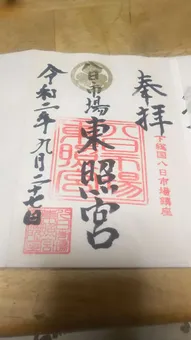 奉拝
下総国八日市場鎮座
八日市場
東照宮
八日市場
東照宮
令和二年九月二十七日